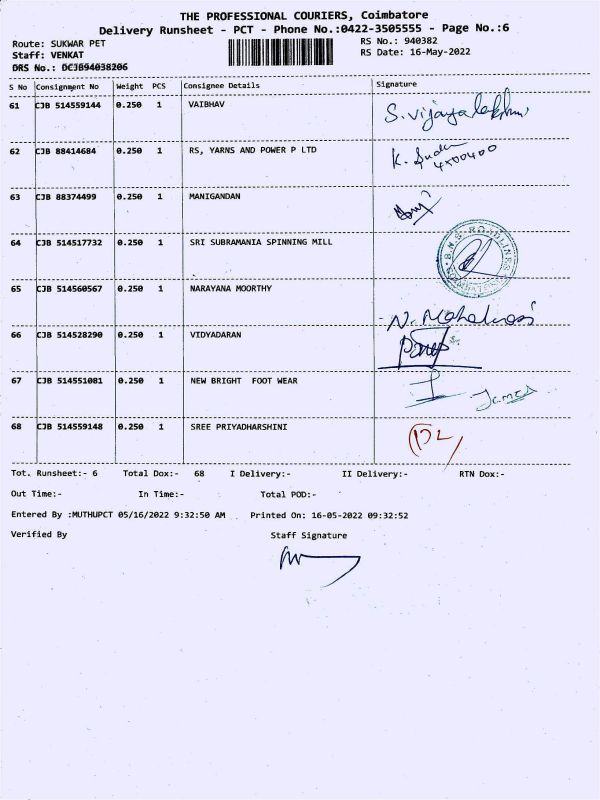 THE PROFESSIONAL COURIERS, Coimbatore
Delivery Runsheet - PCT - Phone No.:0422-3505555 - Page No.:6
Route: SUKWAR PET RS No.: 940382
Staff: VENKAT RS Date: 16-May-2022
DRS No.: DCJB94038206
S No Consignment No Weight PCS Consignee Details Signature
61 CJB 514559144 0.250 1 VAIBHAV S.vijayalakhmi
62 CJB 88414684 0.250 1 RS, YARNS AND POWER P LTD K.
63 CJB 88374499 0.250 1 MANIGANDAN
64 CJB 514517732 0.250 1 SRI SUBRAMANIA SPINNING MILL ROADLINES
65 CJB 514560567 0.250 1 NARAYANA MOORTHY N.
66 CJB 514528290 0.250 1 VIDYADARAN
67 CJB 514551081 0.250 1 NEW BRIGHT FOOT WEAR James
68 CJB 514559148 0.250 1 SREE PRIYADHARSHINI DL
Tot. Runsheet:- 6 Total Dox:- 68 I Delivery:- II Delivery:- RTN Dox:-
Out Time:- In Time:- Total POD:-
Entered By :MUTHUPCT 05/16/2022 9:32:50 AM Printed On: 16-05-2022 09:32:52
Verified By Staff Signature